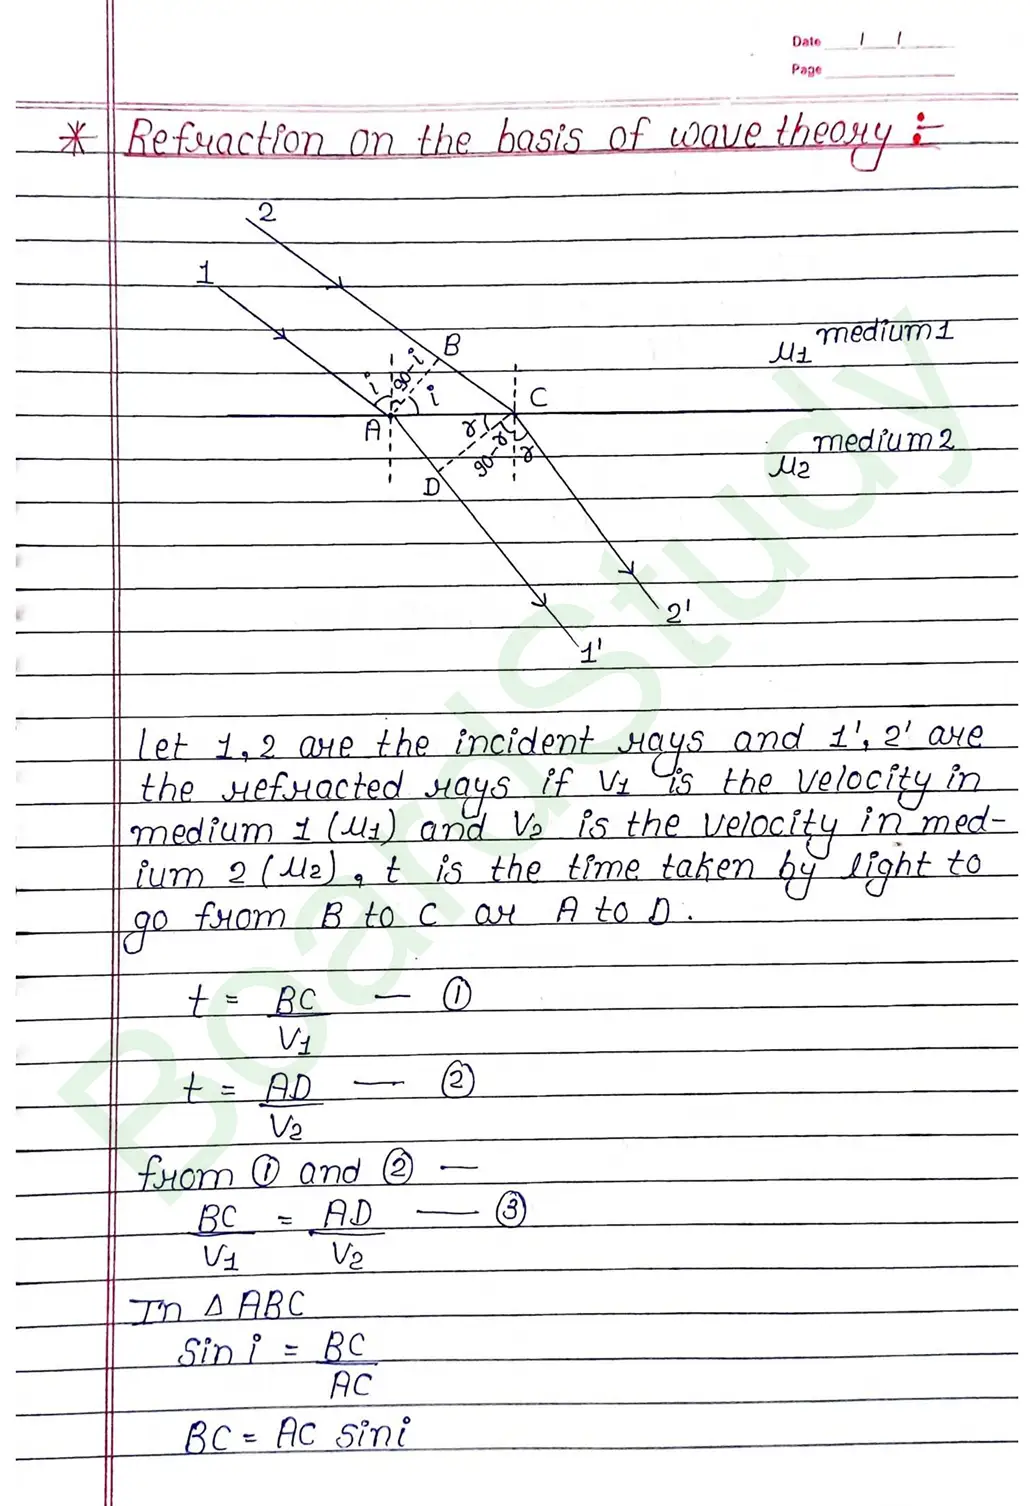 Date / /
Page
* Refraction on the basis of wave theory :-
2
1
B
medium 1
μ1
i
90-i
i
C
A
r
medium 2
90-r
r
μ2
D
2'
1'
Let 1, 2 are the incident rays and 1', 2' are
the refracted rays if V1 is the velocity in
medium 1 (μ1) and V2 is the velocity in med-
ium 2 (μ2), t is the time taken by light to
go from B to C or A to D.
t = BC/V1 — ①
t = AD/V2 — ②
from ① and ② —
BC/V1 = AD/V2 — ③
In Δ ABC
Sin i = BC/AC
BC = AC sin i
BoardStudy